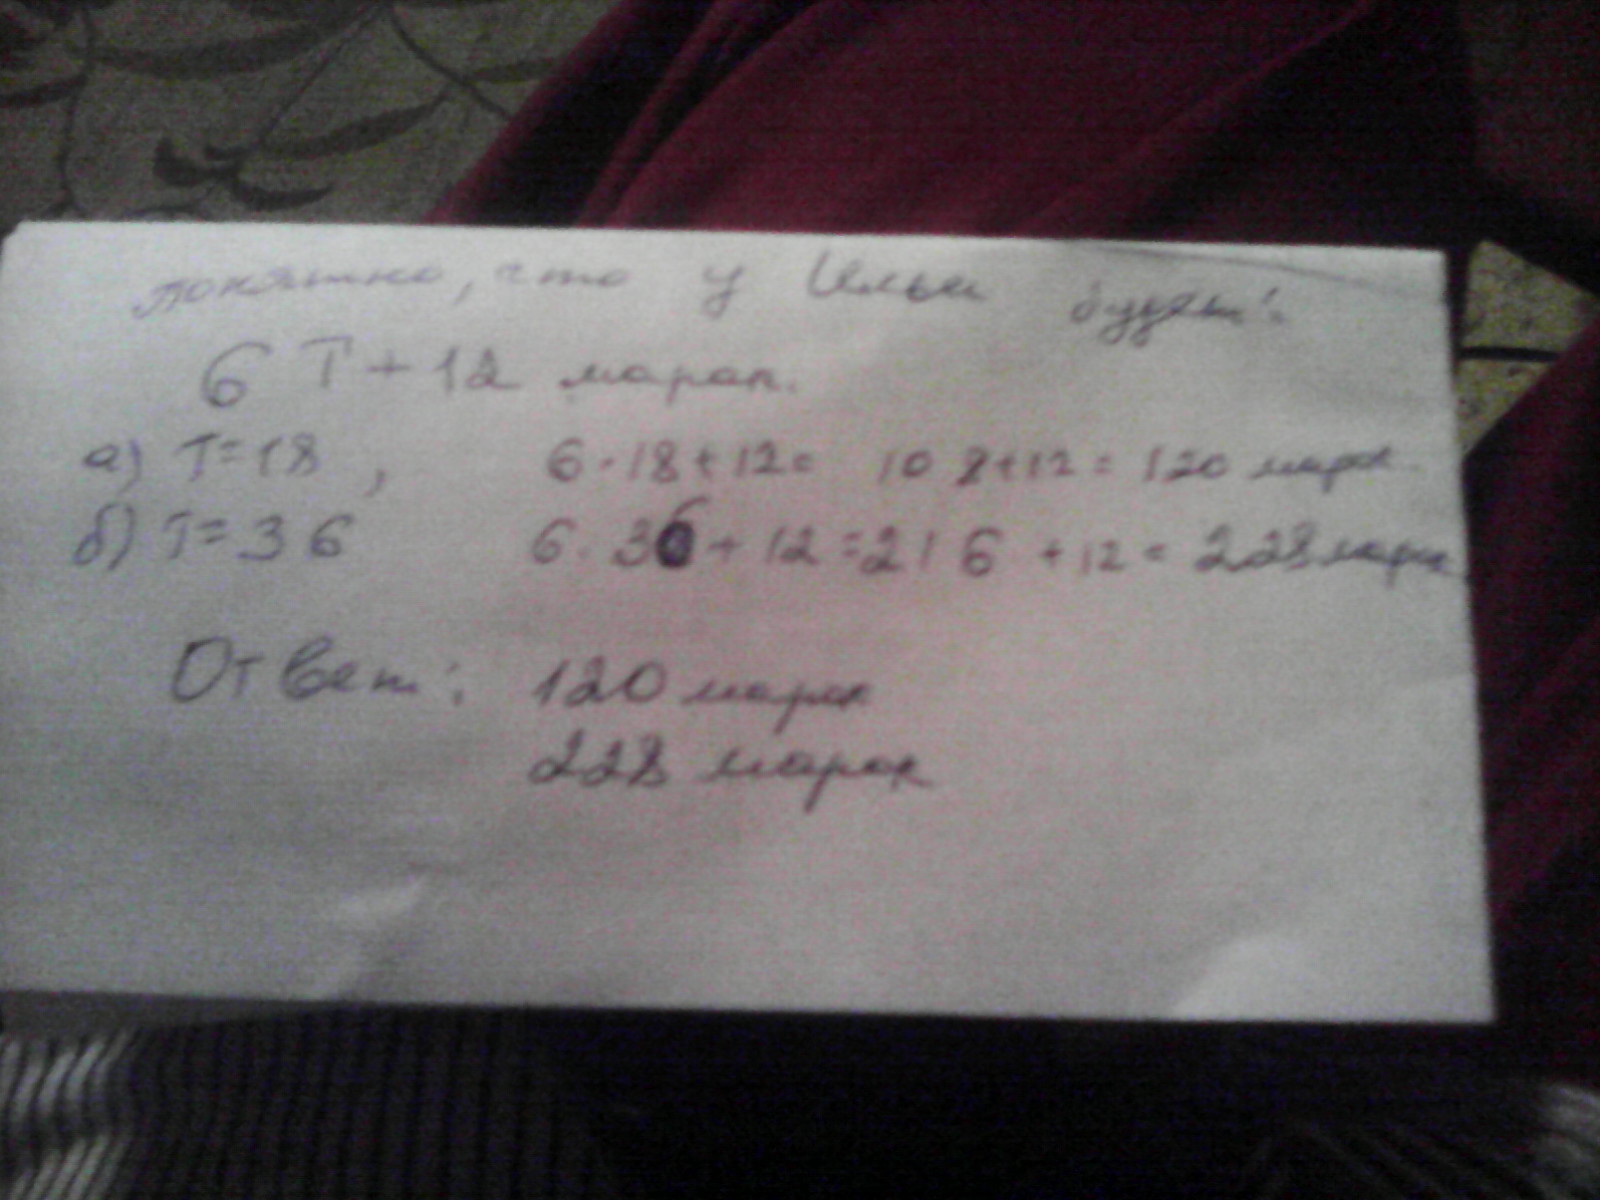 понятно, что у Ильи будет:
6 T + 12 марок.
а) T=18, 6·18+12= 108+12= 120 марок.
б) T=36 6·36+12=216+12= 228 марок
Ответ: 120 марок
228 марок